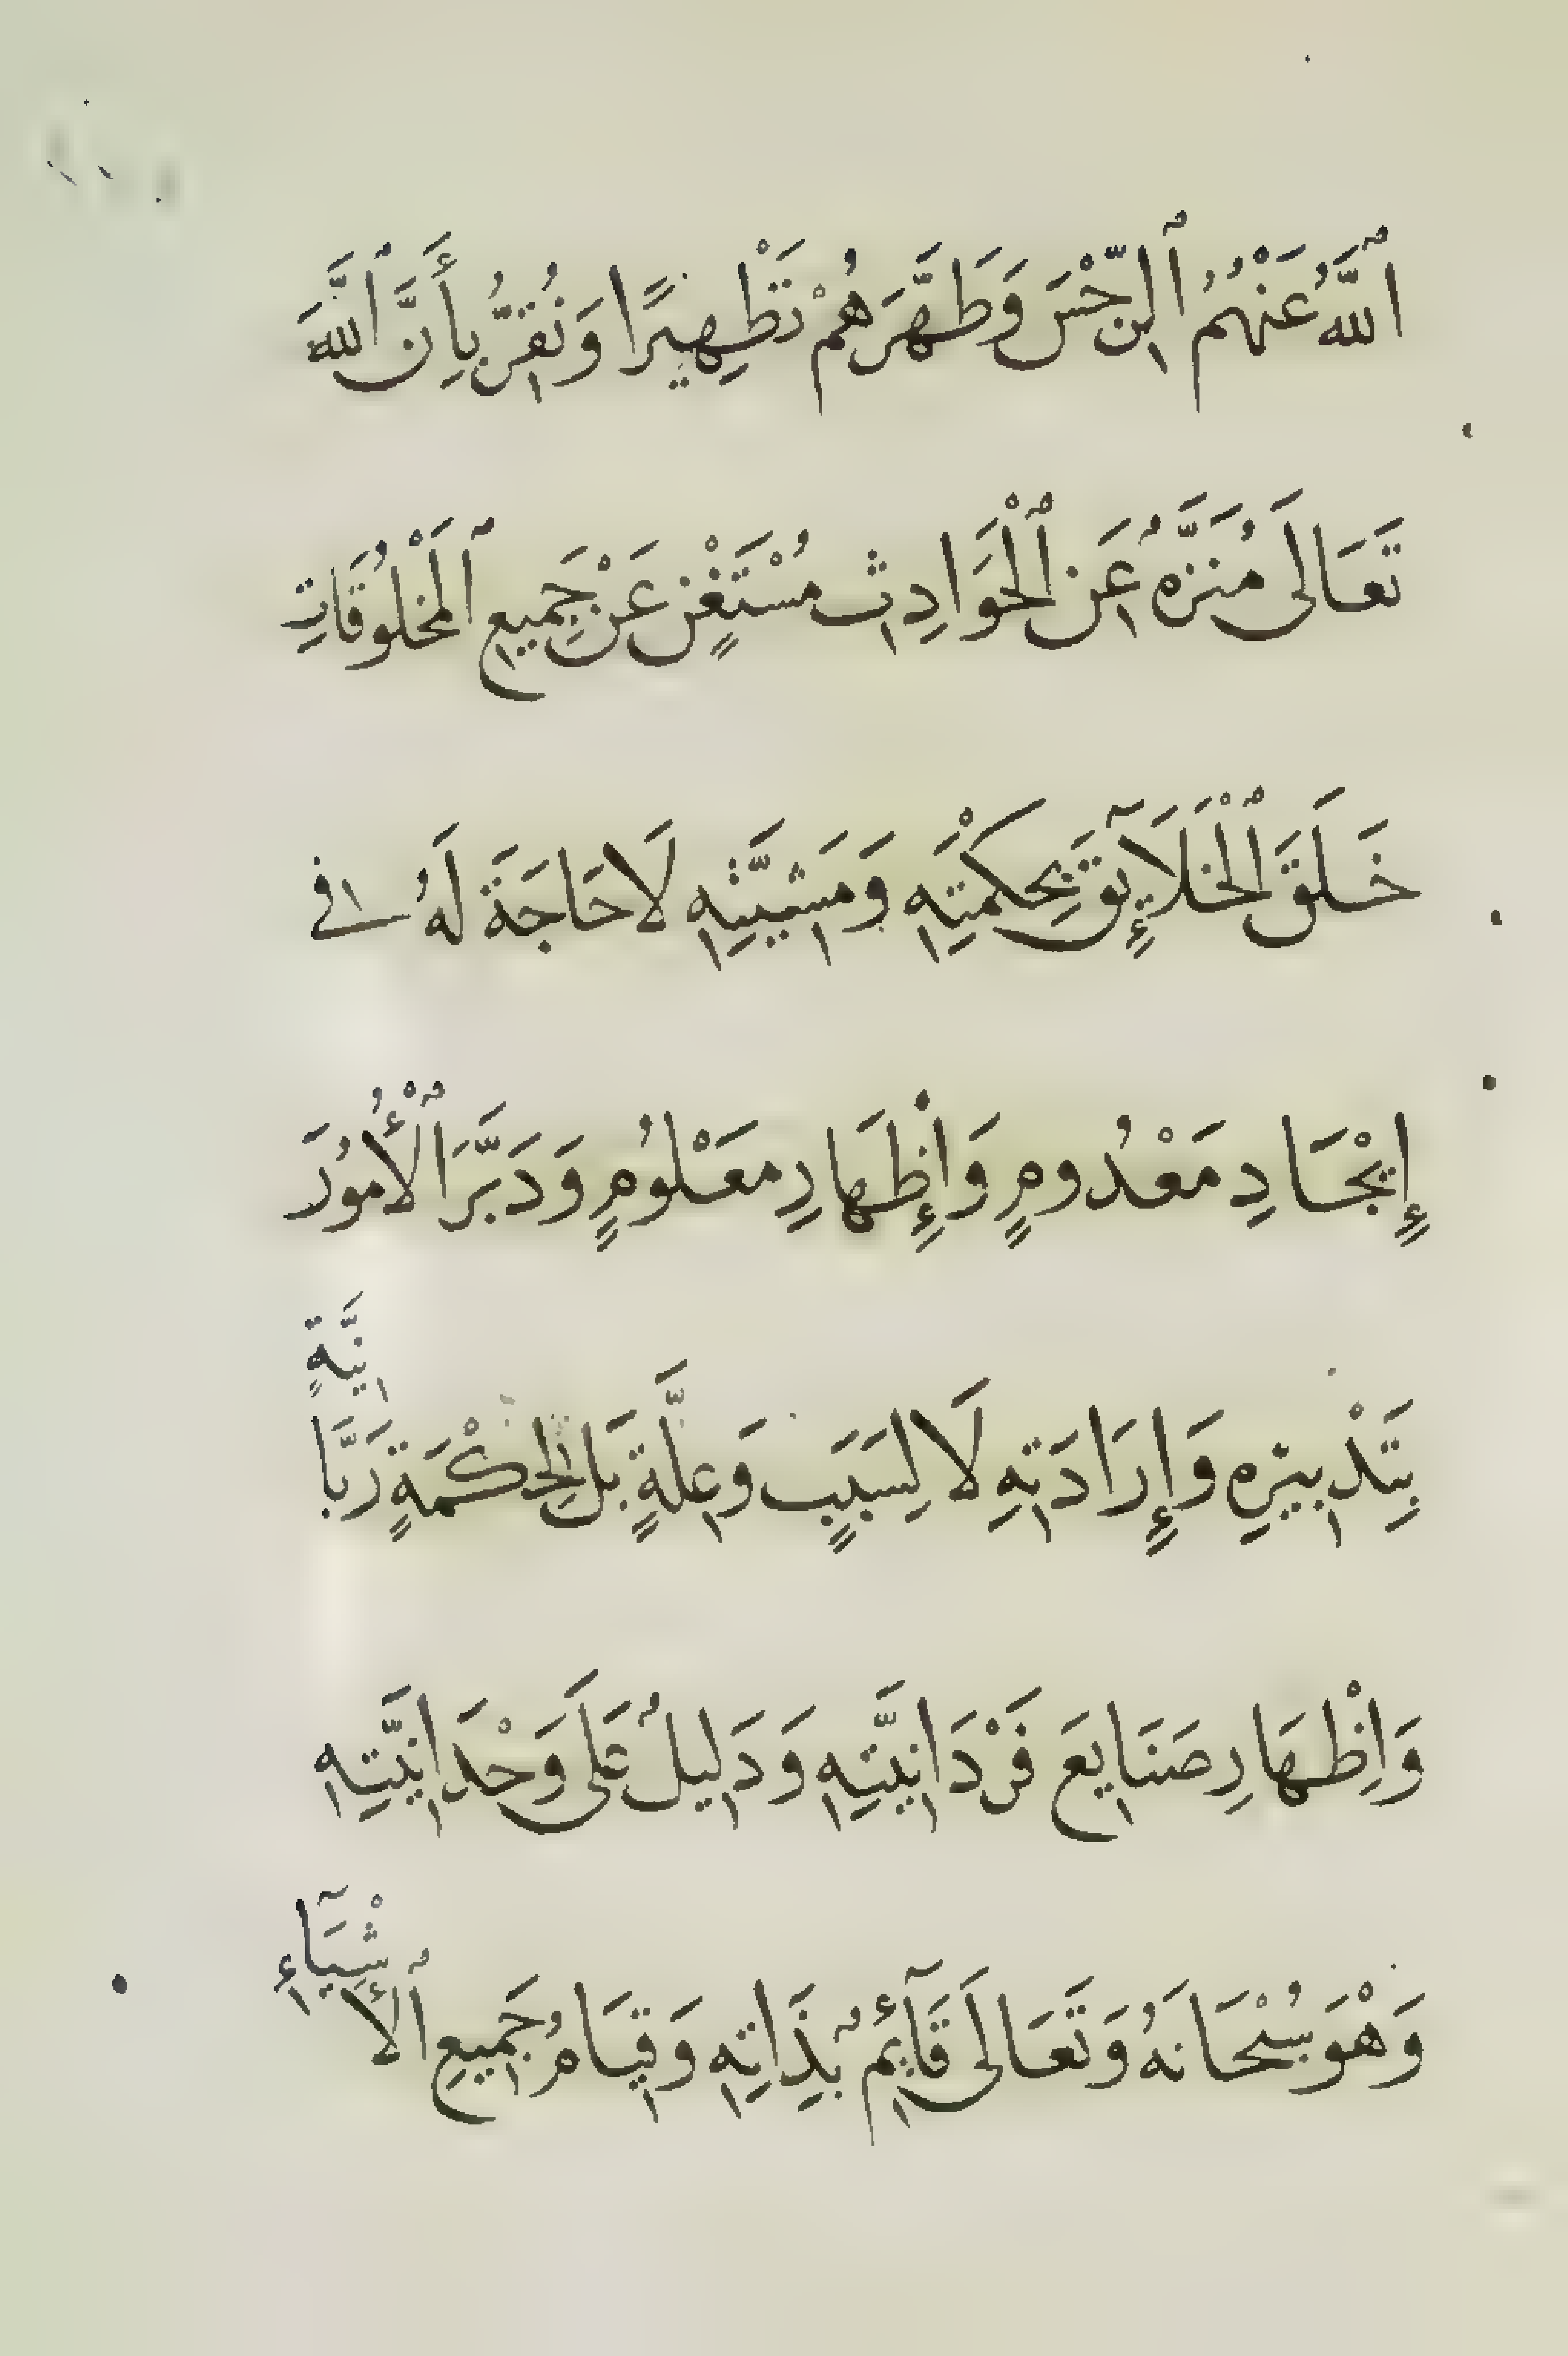 ٱللَّهُ عَنْهُمُ ٱلرِّجْسَ وَطَهَّرَهُمْ تَطْهِيرًا وَنُقِرُّ بِأَنَّ ٱللَّهَ
تَعَالَى مُنَزَّهٌ عَنِ ٱلْحَوَادِثِ مُسْتَغْنٍ عَنْ جَمِيعِ ٱلْمَخْلُوقَاتِ
خَلَقَ ٱلْخَلَآئِقَ بِحِكْمَتِهِ وَمَشِيَّتِهِ لَا حَاجَةَ لَهُ فِي
إِيْجَادِ مَعْدُومٍ وَإِظْهَارِ مَعْلُومٍ وَدَبَّرَ ٱلْأُمُورَ
بِتَدْبِيرِهِ وَإِرَادَتِهِ لَا لِسَبَبٍ وَعِلَّةٍ بَل لِحِكْمَةٍ رَبَّانِيَّةٍ
وَإِظْهَارِ صَنَايِعَ فَرْدَانِيَّتِهِ وَدَلِيلٌ عَلَى وَحْدَانِيَّتِهِ
وَهْوَ سُبْحَانَهُ وَتَعَالَى قَآئِمٌ بِذَاتِهِ وَقِيَامُ جَمِيعِ ٱلْأَشْيَآءِ